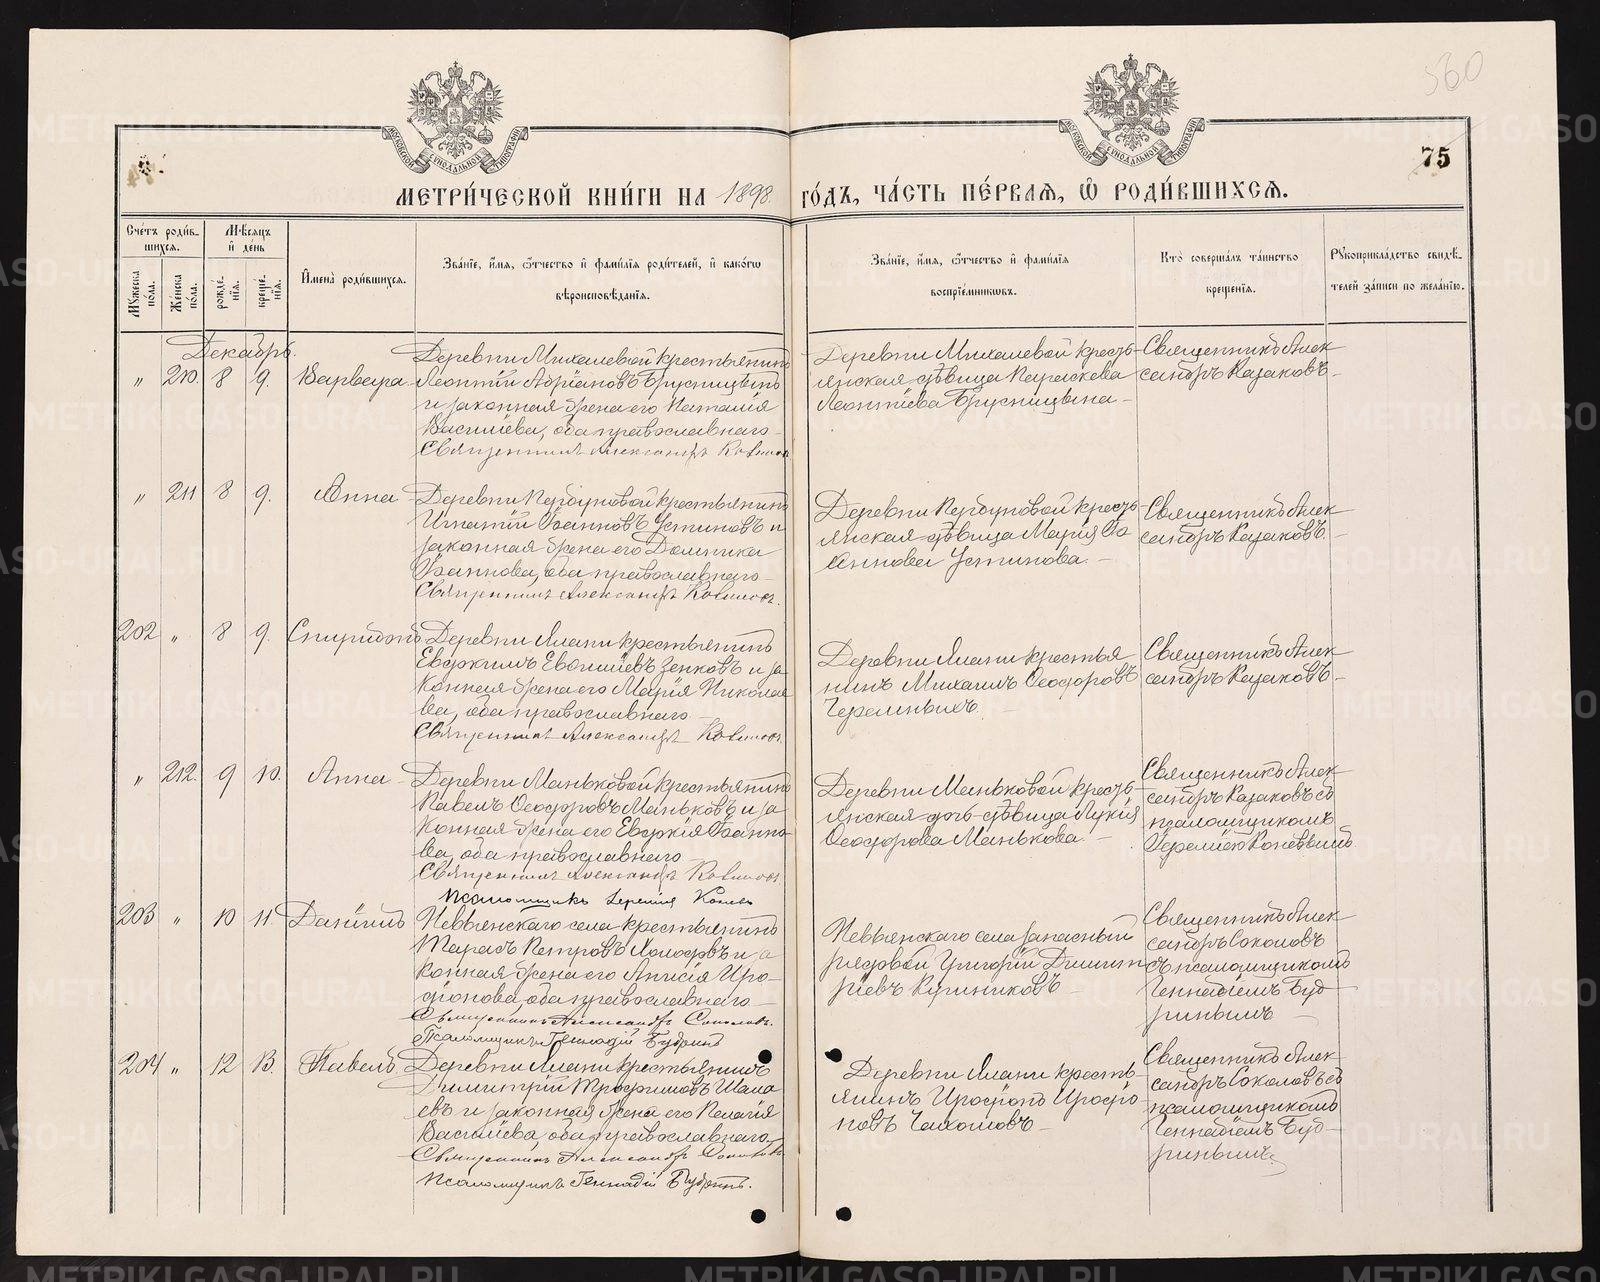 560
МОСКОВСКОЙ СѴНОДАЛЬНОЙ ТИПОГРАФІИ
МОСКОВСКОЙ СѴНОДАЛЬНОЙ ТИПОГРАФІИ
75
МЕТРИ́ЧЕСКОЙ КНИ́ГИ НА 1898 ГО́ДЪ, ЧА́СТЬ ПЕ́РВАѦ, Ѡ҆ РОДИ́ВШИХСѦ.
Сче́тъ роди́в-
шихсѧ.
Мꙋжеска по́ла.
Же́нска по́ла.
Мѣ́сѧцъ
и҆ де́нь
рожде́-
нїѧ.
креще́-
нїѧ.
И҆мена̀ роди́вшихсѧ.
Зва́нїе, и҆́мѧ, ѻ҆́тчество и҆ фами́лїѧ роди́телей, и҆ како́гѡ
вѣроисповѣ́данїѧ.
Зва́нїе, и҆́мѧ, ѻ҆́тчество и҆ фами́лїѧ
воспрїе́мникѡвъ.
Кто̀ соверша́лъ та́инство
креще́нїѧ.
Рꙋкоприкла́дство свидѣ́-
телей за́писи по жела́нїю.
Декабрь.
" 210. 8 9. Варвара
Деревни Михалевой крестьянинъ
Леонтій Адріановъ Брусницынъ
и законная жена его Наталія
Васильева, оба православнаго
Священникъ Александръ Казаковъ
Деревни Михалевой кресть-
янская дѣвица Параскева
Леонтіева Брусницына
Священникъ Алек
сандръ Казаковъ
" 211 8 9. Анна
Деревни крестьянинъ
Игнатій Іоанновъ Устиновъ и
законная жена его Домника
Іоаннова, оба православнаго
Священникъ Александръ Казаковъ.
Деревни кресть-
янская дѣвица Марія Іо
аннова Устинова.
Священникъ Алек
сандръ Казаковъ.
202 " 8 9. Спиридонъ
Деревни Ялани крестьянинъ
Зенковъ и за
конная жена его Марія Николае
ва, оба православнаго
Священникъ Александръ Казаковъ.
Деревни Ялани крестья
нинъ Михаилъ Ѳеодоровъ
Черемныхъ.
Священникъ Алек
сандръ Казаковъ
" 212. 9 10. Анна
Деревни Маньковой крестьянинъ
Павелъ Ѳеодоровъ Маньковъ и за
конная жена его Евдокія Іоанно-
ва, оба православнаго
Священникъ Александръ Казаковъ
Псаломщикъ Іеремія Коневъ
Деревни Маньковой кресть-
янская дочь дѣвица Лукія
Ѳеодорова Манькова.
Священникъ Алек
сандръ Казаковъ съ
псаломщикомъ
Іереміею Коневымъ
203 " 10 11. Даніилъ
Невьянскаго села крестьянинъ
Тарасъ Петровъ и за
конная жена его Анисія Иро-
діонова, оба православнаго
Священникъ Александръ Соколовъ.
Псаломщикъ Геннадій Будринъ
Невьянскаго села запасный
рядовой Григорій Димит
ріевъ
Священникъ Алек
сандръ Соколовъ
съ псаломщикомъ
Геннадіемъ Буд-
ринымъ
204 " 12 13. Павелъ
Деревни Ялани крестьянинъ
Димитрій Трофимовъ Шала
евъ и законная жена его Пелагія
Васильева, оба православнаго
Священникъ Александръ Соколовъ
Псаломщикъ Геннадій Будринъ.
Деревни Ялани кресть-
янинъ
новъ
Священникъ Алек
сандръ Соколовъ съ
псаломщикомъ
Геннадіемъ Буд-
ринымъ
METRIKI.GASO-URAL.RU